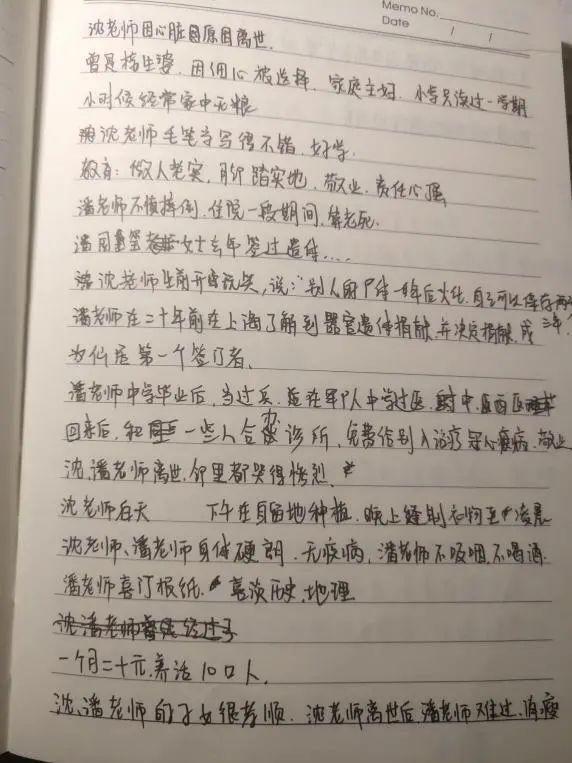 Memo No.
Date / /
沈老师因心脏原因离世.
曾是接生婆, 因细心被选择, 家庭主妇, 小学只读过一学期
小时候经常家中无粮
沈老师毛笔字写得不错, 好学.
教育: 做人老实, 脚踏实地, 敬业, 责任心强
潘老师不慎摔倒, 住院一段期间, 算老死.
潘 女士去年签过遗体....
沈老师生前开玩笑, 说: "别人的尸体一年后火化, 自己可以保存两
潘老师在二十年前在上海了解到器官遗体捐献, 并决定捐献, 成 三年?
为仙居第一个签订者.
潘老师中学毕业后, 当过兵, 在军人中学过医,
回来后, 和一些人合办诊所, 免费给别人治疗 病, 敬业
沈、潘老师离世, 邻里都哭得惨烈.
沈老师白天 下午在自留地种植, 晚上缝制衣物至凌晨
沈老师、潘老师身体硬朗, 无疾病, 潘老师不吸烟, 不喝酒.
潘老师喜订报纸. 喜谈历史, 地理
沈潘老师曾经经过了
一个月二十元, 养活10口人,
沈、潘老师的子女很孝顺. 沈老师离世后, 潘老师难过, 消瘦